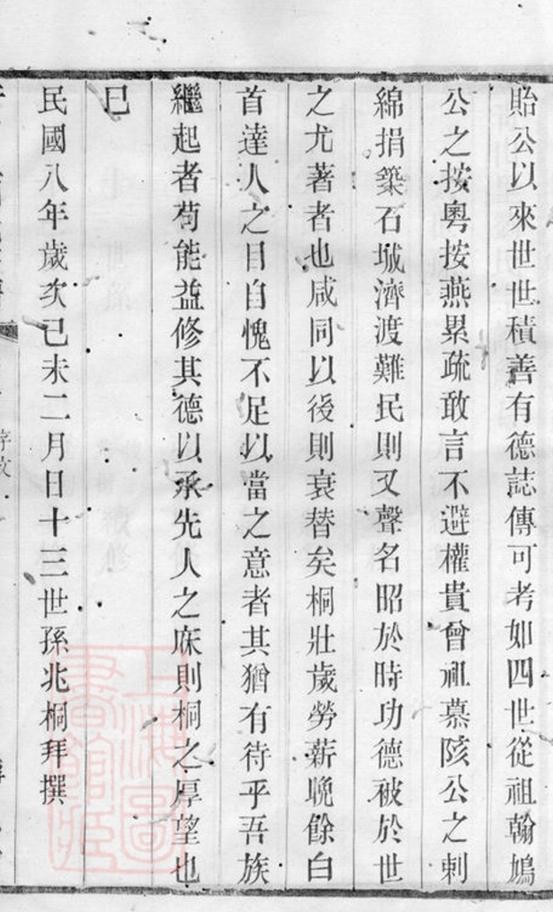 貽公以來世世積善有德誌傳可考如四世從祖翰鳩
公之按粵按燕累疏敢言不避權貴曾祖慕陔公之刺
綿捐築石城濟渡難民則又聲名昭於時功德被於世
之尤著者也咸同以後則衰替矣桐壯歲勞薪晚餘白
首達人之目自愧不足以當之意者其猶有待乎吾族
繼起者苟能益修其德以承先人之庥則桐之厚望也
已
民國八年歲次己未二月日十三世孫兆桐拜撰
上海圖書館藏